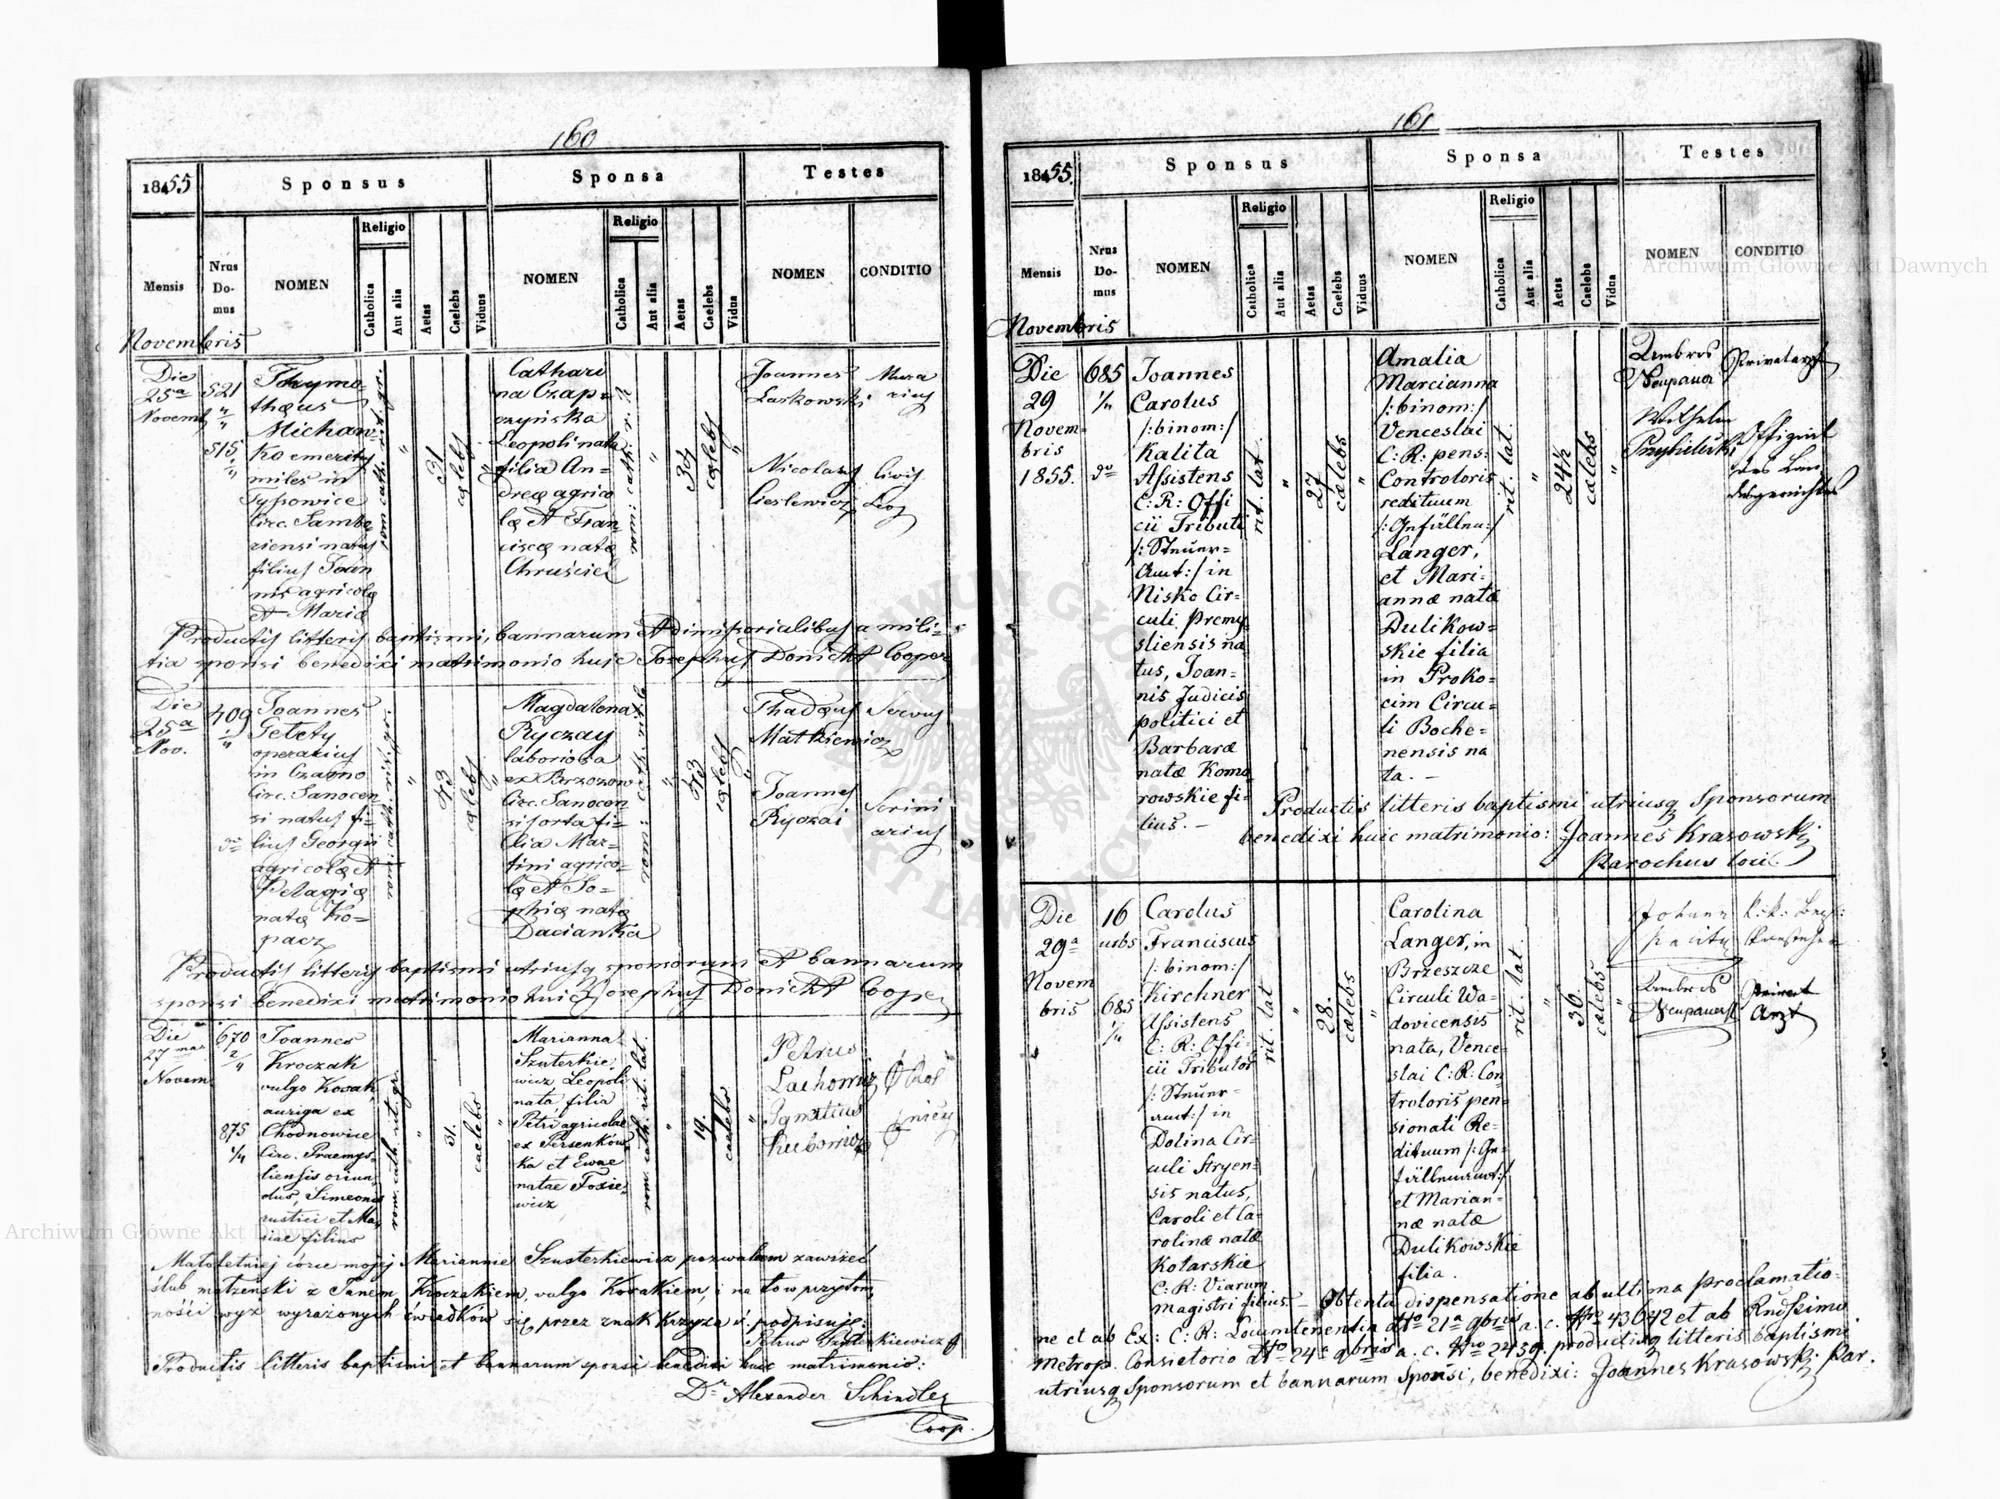 160
1855
Sponsus
Sponsa
Testes
Mensis
Nrus
Do-
mus
NOMEN
Religio
Catholica
Aut alia
Aetas
Caelebs
Viduus
NOMEN
Religio
Catholica
Aut alia
Aetas
Caelebs
Vidua
NOMEN
CONDITIO
Novembris
Die
25ta
Novemb
521
515
thæus
Michaw-
ko emeritus
miles in
Tyszowice
Circ. Sambo-
riensi natus
filius Joan
nis agricolæ
et Mariæ
rom: cath: rit. gr.
31
cælebs
Cathari
na Czap-
czyńska
Leopoli nata
filia An-
dreæ agrico
læ et Fran-
ciscæ natæ
Chruściel
cælebs
Joannes
Laskowski
Mura
rius
Nicolaus
Cieslewicz
Civis
Leop
Productis litteris baptismi, bannarum et dimissorialibus a mili-
tia sponsi benedixi matrimonio huic Josephus Donicht Cooper
Die
25ta
Nov.
409
Joannes
Getety
operarius
in Czarno
Circ. Sanocen
si natus fi-
lius Georgii
agricolæ et
Pelagiæ
natæ Ko-
pacz
rom: cath: rit: gr.
43
cælebs
Magdalena
Ryczay
laboriosa
ex Brzozow
Circ. Sanocen
si orta fi-
lia Mar-
tini agrico-
læ et So-
phiæ natæ
Dacianka
43
cælebs
Thadæus
Matkiewicz
Servus
Joannes
Ryczai
Scrini
arius
Productis litteris baptismi utriusq sponsorum et bannarum
sponsi benedixi matrimonio huic Josephus Donicht Cooper
Die
27mas
Novem
670
2/4
875
1/4
Joannes
Kroczak
vulgo Kozak,
auriga ex
Chodnowice
Circ. Praemys-
liensis oriun-
dus, Simeonis
rustici et Ma-
riae filius
rom. cath. rit. gr.
31.
caelebs
Marianna
Szuterkie-
wicz Leopoli
nata filia
Petri agricolae
ex Persenków-
ka et Ewae
natae Tosie-
wicz
rom. cath. rit. lat.
19.
caelebs
Petrus
Lachowicz
Ignatius
Kubowicz
Małoletniej córce mojej Mariannie Szuterkiewicz pozwalam zawrzeć
ślub małżeński z Janem Kroczakiem, vulgo Kozakiem, i na to w przytom-
ności wyż wyrażonych świadków się przez znak krzyża ś. podpisuję:
Petrus Szuterkiewicz
Productis litteris baptismi et bannarum sponsi benedixi huic matrimonio:
Dr Alexander Schindler
Coop.
161
1855.
Sponsus
Sponsa
Testes
Mensis
Nrus
Do-
mus
NOMEN
Religio
Catholica
Aut alia
Aetas
Caelebs
Viduus
NOMEN
Religio
Catholica
Aut alia
Aetas
Caelebs
Vidua
NOMEN
CONDITIO
Novembris
Die
29
Novem-
bris
1855.
685
1/4
Joannes
Carolus
/:binom:/
Kalita
Assistens
C: R: Offi
cii Tributi
/:Steuer-
Amt:/ in
Nisko Cir-
culi Premy-
sliensis na
tus, Joan-
nis Judicis
politici et
Barbaræ
natæ Komo
rowskie fi-
lius. –
rit. lat.
27
cælebs
Amalia
Marcianna
/:binom:/
Venceslai
C: R: pens:
Controloris
redituum
/:Gefüllen:/
Langer,
et Mari-
annæ natæ
Dulikow-
skie filia
in Proko-
cim Circu-
li Boche-
nensis na
ta. –
rit. lat.
24½
cælebs
Ambros
Neupauer
Privatarzt
Wilhelm
Offizial
des Lan-
desgerichtes
Productis litteris baptismi utriusq Sponsorum
benedixi huic matrimonio: Joannes Krasowski
Parochus loci
Die
29a
Novem
bris
16
urbs
685
1/4
Carolus
Franciscus
/:binom:/
Kirchner
Assistens
C: R: Offi-
cii Tributor
/:Steuer-
amt:/ in
Dolina Cir-
culi Stryen-
sis natus,
Caroli et Ca-
rolinæ natæ
Kotarskie
C: R: Viarum
magistri filius. –
rit. lat
28.
cælebs
Carolina
Langer, in
Brzeszcze
Circuli Wa-
dovicensis
nata, Vence-
slai C: R: Con-
troloris pen-
sionati Re-
dituum /:Ge-
füllenamt:/
et Marian-
næ natæ
Dulikowskie
filia.
rit. lat.
36.
cælebs
Johann
Kalita
Ambros
Neupauer
Privat
Arzt
Obtenta dispensatione ab ultima proclamatio-
ne et ab Ex: C: R: Locumtenentia dtto 21a 9bris a. c. Nro 43642 et ab Rudssimo
Metrop. Consistorio dtto 24a 9bris a. c. Nro 2439. productisq litteris baptismi
utriusq Sponsorum et bannarum Sponsi, benedixi: Joannes Krasowski Par.
Archiwum Główne Akt Dawnych
Archiwum Główne Akt Dawnych
ARCHIWUM GŁÓWNE AKT DAWNYCH